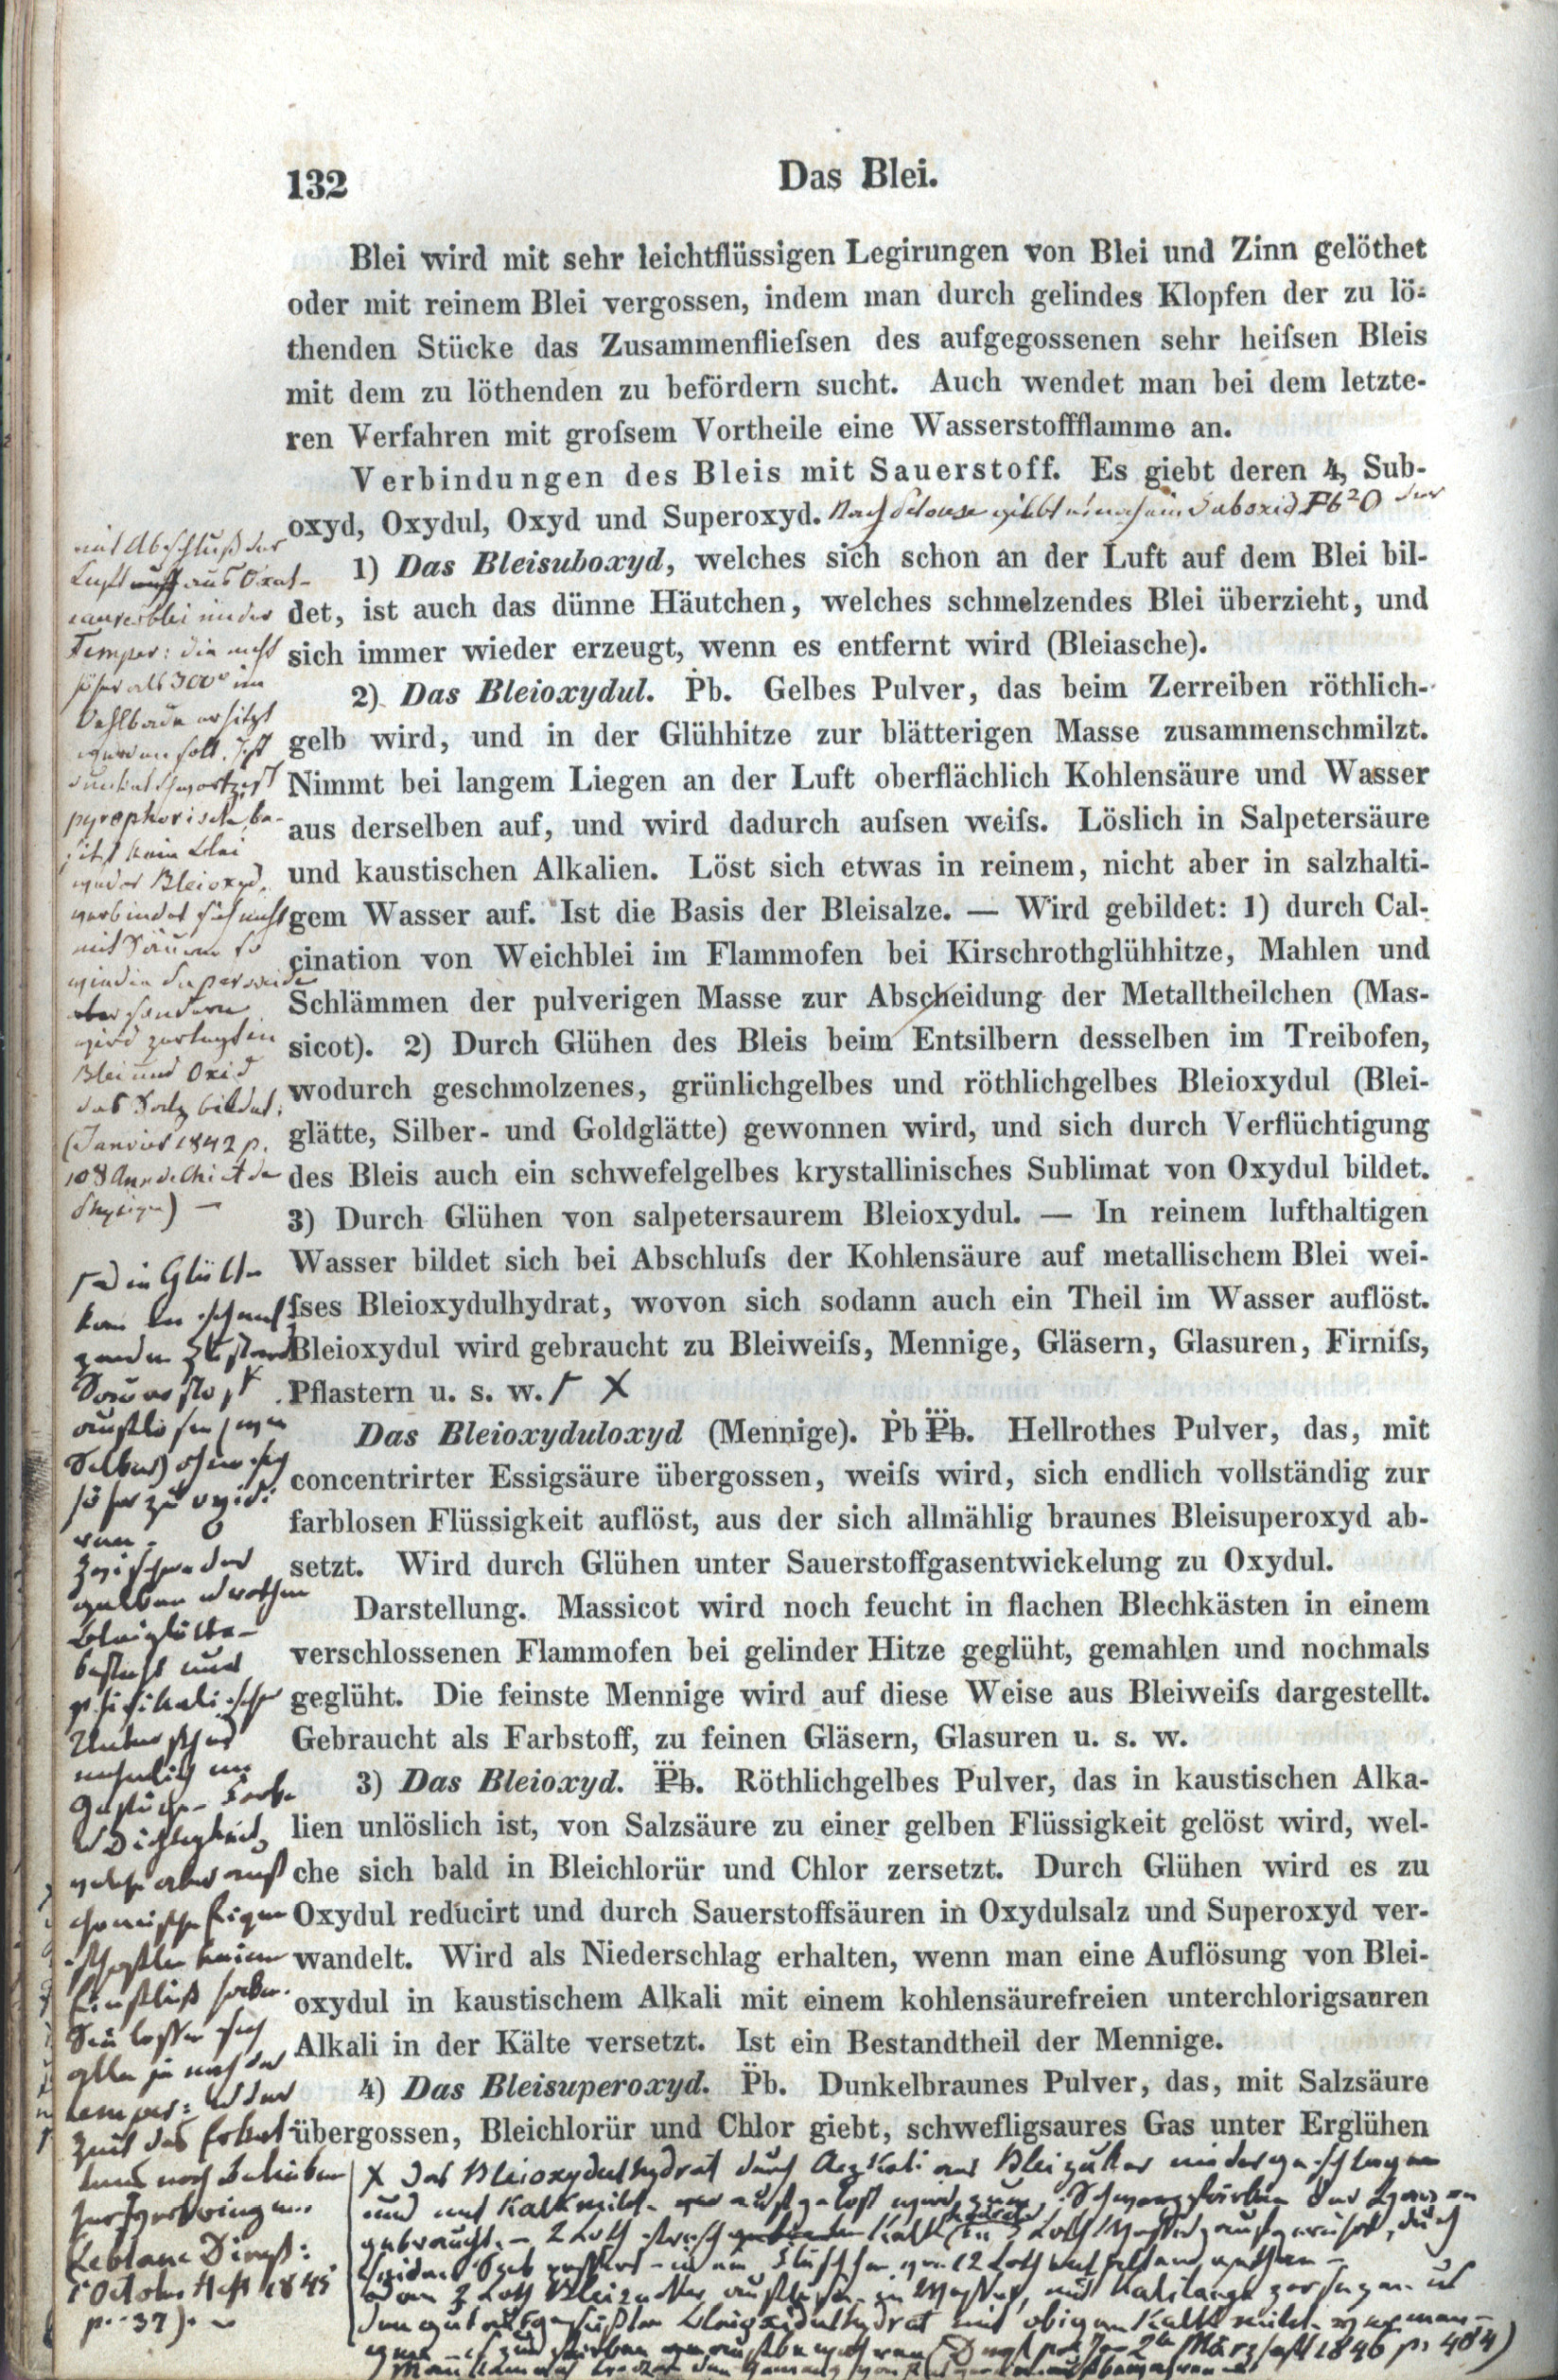 132
Das Blei.
Blei wird mit sehr leichtflüssigen Legirungen von Blei und Zinn gelöthet
oder mit reinem Blei vergossen, indem man durch gelindes Klopfen der zu lö-
thenden Stücke das Zusammenflieſsen des aufgegossenen sehr heiſsen Bleis
mit dem zu löthenden zu befördern sucht. Auch wendet man bei dem letzte-
ren Verfahren mit groſsem Vortheile eine Wasserstoffflamme an.
Verbindungen des Bleis mit Sauerstoff. Es giebt deren 4, Sub-
oxyd, Oxydul, Oxyd und Superoxyd. Nach Pelouse giebt es noch ein Suboxid Pb²O das
1) Das Bleisuboxyd, welches sich schon an der Luft auf dem Blei bil-
det, ist auch das dünne Häutchen, welches schmelzendes Blei überzieht, und
sich immer wieder erzeugt, wenn es entfernt wird (Bleiasche).
2) Das Bleioxydul. Ṗb. Gelbes Pulver, das beim Zerreiben röthlich-
gelb wird, und in der Glühhitze zur blätterigen Masse zusammenschmilzt.
Nimmt bei langem Liegen an der Luft oberflächlich Kohlensäure und Wasser
aus derselben auf, und wird dadurch auſsen weiſs. Löslich in Salpetersäure
und kaustischen Alkalien. Löst sich etwas in reinem, nicht aber in salzhalti-
gem Wasser auf. Ist die Basis der Bleisalze. — Wird gebildet: 1) durch Cal-
cination von Weichblei im Flammofen bei Kirschrothglühhitze, Mahlen und
Schlämmen der pulverigen Masse zur Abscheidung der Metalltheilchen (Mas-
sicot). 2) Durch Glühen des Bleis beim Entsilbern desselben im Treibofen,
wodurch geschmolzenes, grünlichgelbes und röthlichgelbes Bleioxydul (Blei-
glätte, Silber- und Goldglätte) gewonnen wird, und sich durch Verflüchtigung
des Bleis auch ein schwefelgelbes krystallinisches Sublimat von Oxydul bildet.
3) Durch Glühen von salpetersaurem Bleioxydul. — In reinem lufthaltigen
Wasser bildet sich bei Abschluſs der Kohlensäure auf metallischem Blei wei-
ſses Bleioxydulhydrat, wovon sich sodann auch ein Theil im Wasser auflöst.
Bleioxydul wird gebraucht zu Bleiweiſs, Mennige, Gläsern, Glasuren, Firniſs,
Pflastern u. s. w. Γ X
Das Bleioxyduloxyd (Mennige). Ṗb P⃛b. Hellrothes Pulver, das, mit
concentrirter Essigsäure übergossen, weiſs wird, sich endlich vollständig zur
farblosen Flüssigkeit auflöst, aus der sich allmählig braunes Bleisuperoxyd ab-
setzt. Wird durch Glühen unter Sauerstoffgasentwickelung zu Oxydul.
Darstellung. Massicot wird noch feucht in flachen Blechkästen in einem
verschlossenen Flammofen bei gelinder Hitze geglüht, gemahlen und nochmals
geglüht. Die feinste Mennige wird auf diese Weise aus Bleiweiſs dargestellt.
Gebraucht als Farbstoff, zu feinen Gläsern, Glasuren u. s. w.
3) Das Bleioxyd. P⃛b. Röthlichgelbes Pulver, das in kaustischen Alka-
lien unlöslich ist, von Salzsäure zu einer gelben Flüssigkeit gelöst wird, wel-
che sich bald in Bleichlorür und Chlor zersetzt. Durch Glühen wird es zu
Oxydul reducirt und durch Sauerstoffsäuren in Oxydulsalz und Superoxyd ver-
wandelt. Wird als Niederschlag erhalten, wenn man eine Auflösung von Blei-
oxydul in kaustischem Alkali mit einem kohlensäurefreien unterchlorigsauren
Alkali in der Kälte versetzt. Ist ein Bestandtheil der Mennige.
4) Das Bleisuperoxyd. P̈b. Dunkelbraunes Pulver, das, mit Salzsäure
übergossen, Bleichlorür und Chlor giebt, schwefligsaures Gas unter Erglühen
mit Abschluß der
Luft aus Oxal-
sauresblei in der
Temper: die nicht
höher als 300° im
Oehlbade erhitzt
werden soll. Ist
dunkelschwartz ist
pyrophorisch, be-
sitzt kein Blei
weder Bleioxyd.
verbindet sich nicht
mit Säuren so
wie die Superoxide
sondern
wird zerlegt in
Blei und Oxid
das Salz bildet.
(Janvier 1842 p.
108 Ann de Chi et de
Physique) —
Γ Die Glätte
kan im schmel
zenden Zustand
Sauerstoff
auflösen (wie
Silber) ohne sich
höher zu oxidi
ren.
Zwischen der
gelben u rothen
Bleiglätte
besteht nur
phisikalischer
Unterschied
nehmlich im
Gefüge, Farbe
u Dichtigkeit,
welche aber auf
chemische Eigen
schaften keinen
Einfluß haben.
Sie lassen sich
alle je nach der
temper: u der
Zeit des Erkal
tens nach Belieben
hervorbringen.
Leblanc Dingl:
1 October Heft 1845
p. 37).
X Das Bleioxydulhydrat durch Aezkali aus Bleizuker niedergeschlagen
und mit Kalkmilch aufgelöst wird zum Schwarzfärben der
gebraucht. — 2 Loth Kalk in 3 Loth Wasser
12 Loth
2 Loth Bleizucker auflösen in Wasser, mit Kalilauge zersezen u
den gut ausgesüßten Bleioxidulhydrat mit obigen Kalkmilch
(Dingl 2te März heft 1846 p. 484)